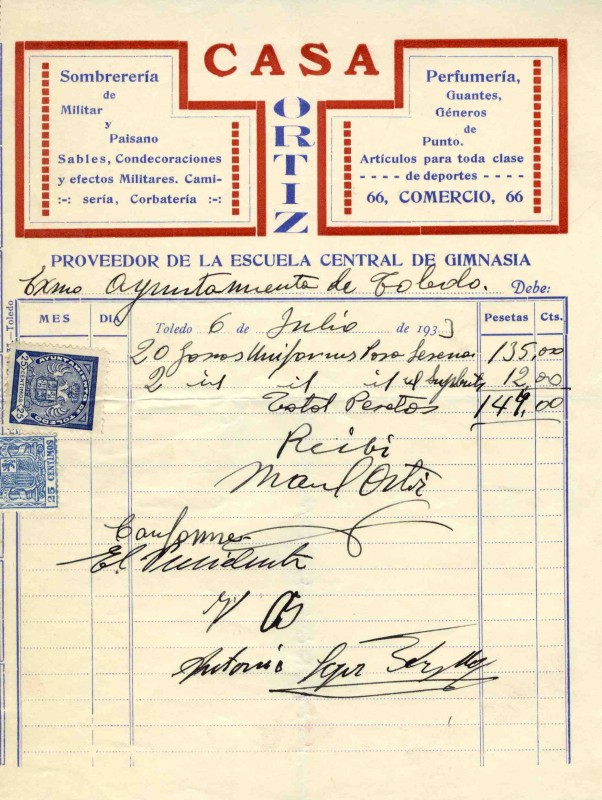 CASA
ORTIZ
Sombrerería
de
Militar
y
Paisano
Sables, Condecoraciones
y efectos Militares. Cami-
:-: sería, Corbatería :-:
Perfumería,
Guantes,
Géneros
de
Punto.
Artículos para toda clase
- - - - de deportes - - - -
66, COMERCIO, 66
PROVEEDOR DE LA ESCUELA CENTRAL DE GIMNASIA
Exmo Ayuntamiento de Toledo. Debe:
MES DIA Toledo 6 de Julio de 1933 Pesetas Cts.
20 Uniformes Para Serenos 135,00
2 id id id 12,00
Total Pesetas 147,00
Recibi
Manl Ortiz
Conforme
El Presidente
Antonio
AYUNTAMIENTO DE TOLEDO
25 CENTIMOS 25
25 CENTIMOS
Toledo